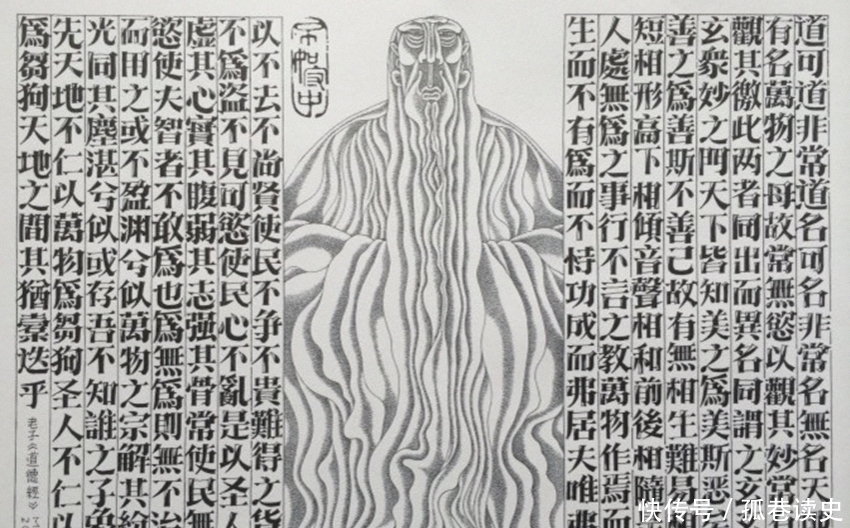 道可道非常道名可名非常名無名天
有名萬物之母故常無慾以觀其妙常
觀其徼此两者同出而異名同謂之玄
玄衆妙之門天下皆知美之爲美斯恶
善之爲善斯不善己故有無相生難易
短相形高下相傾音聲相和前後相隨
人處無爲之事行不言之教萬物作焉而
生而不有爲而不恃功成而弗居夫唯弗
以不去不尚賢使民不争不貴難得之货
不爲盗不見可慾使民心不亂是以圣人
虚其心實其腹弱其志强其骨常使民無
慾使夫智者不敢爲也爲無爲則無不治
而用之或不盈渊兮似萬物之宗解其紛
光同其塵湛兮似或存吾不知誰之子象
先天地不仁以萬物爲芻狗圣人不仁以
爲芻狗天地之間其猶橐迭乎
老子《道德經》
快传号 / 孤巷读史